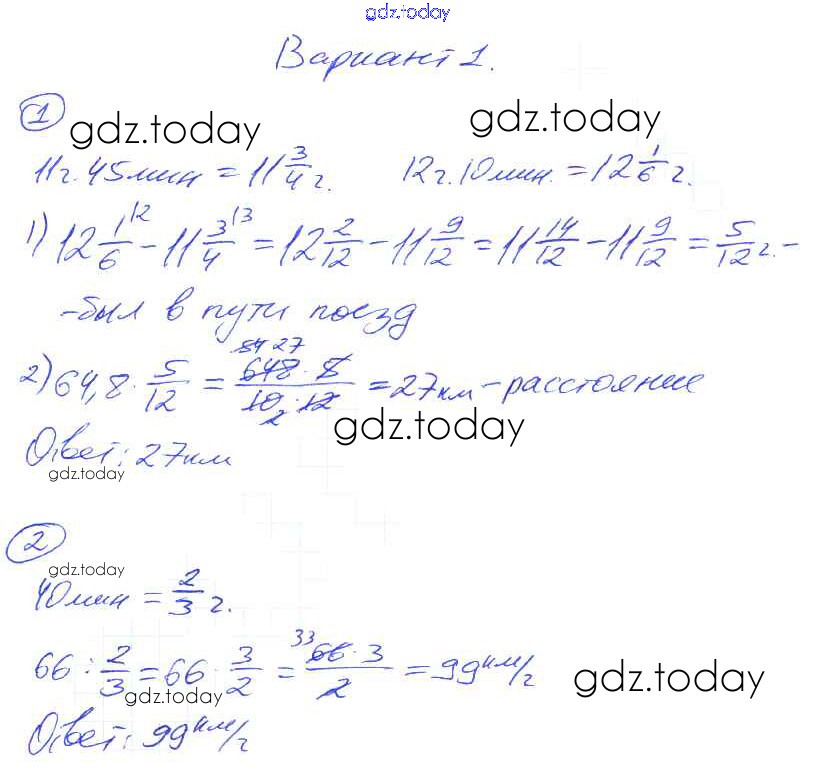 gdz.today
Вариант 1.
1
gdz.today gdz.today
11г. 45мин = 11 3/4 г. 12г. 10мин. = 12 1/6 г.
1) 12 1/6 \2 - 11 3/4 \3 = 12 2/12 - 11 9/12 = 11 14/12 - 11 9/12 = 5/12 г. -
- был в пути поезд
54 27
2) 64,8 · 5/12 = 648 · 5 / 10 2 · 12 = 27км - расстояние
gdz.today
Ответ: 27км
gdz.today
2
gdz.today
40мин = 2/3 г.
66 : 2/3 = 66 · 3/2 = 33 66 · 3 / 2 = 99 км/г
gdz.today
gdz.today
Ответ: 99 км/г